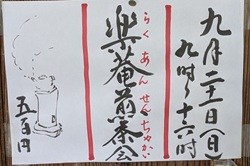 九月二十二日(日)
九時~十六時
らくあんせんちゃかい
楽菴煎茶会
五百円